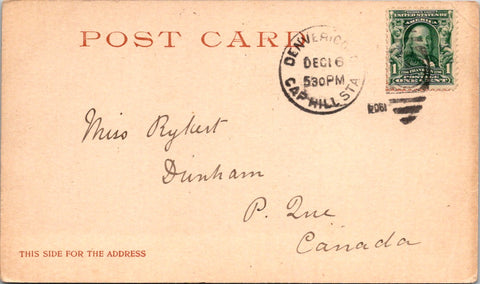 POST CARD
DENVER, CO
DEC 16
530 PM
CAP HILL STA.
UNITED STATES OF AMERICA
1 ONE CENT 1
Miss Rykert
Dunham
P. Que
Canada
THIS SIDE FOR THE ADDRESS